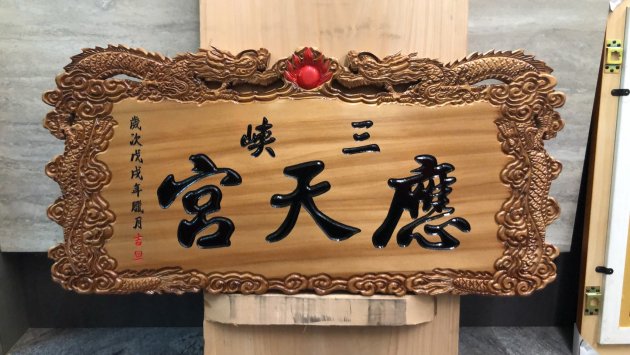 三峽
應天宮
歲次戊戌年臘月吉旦